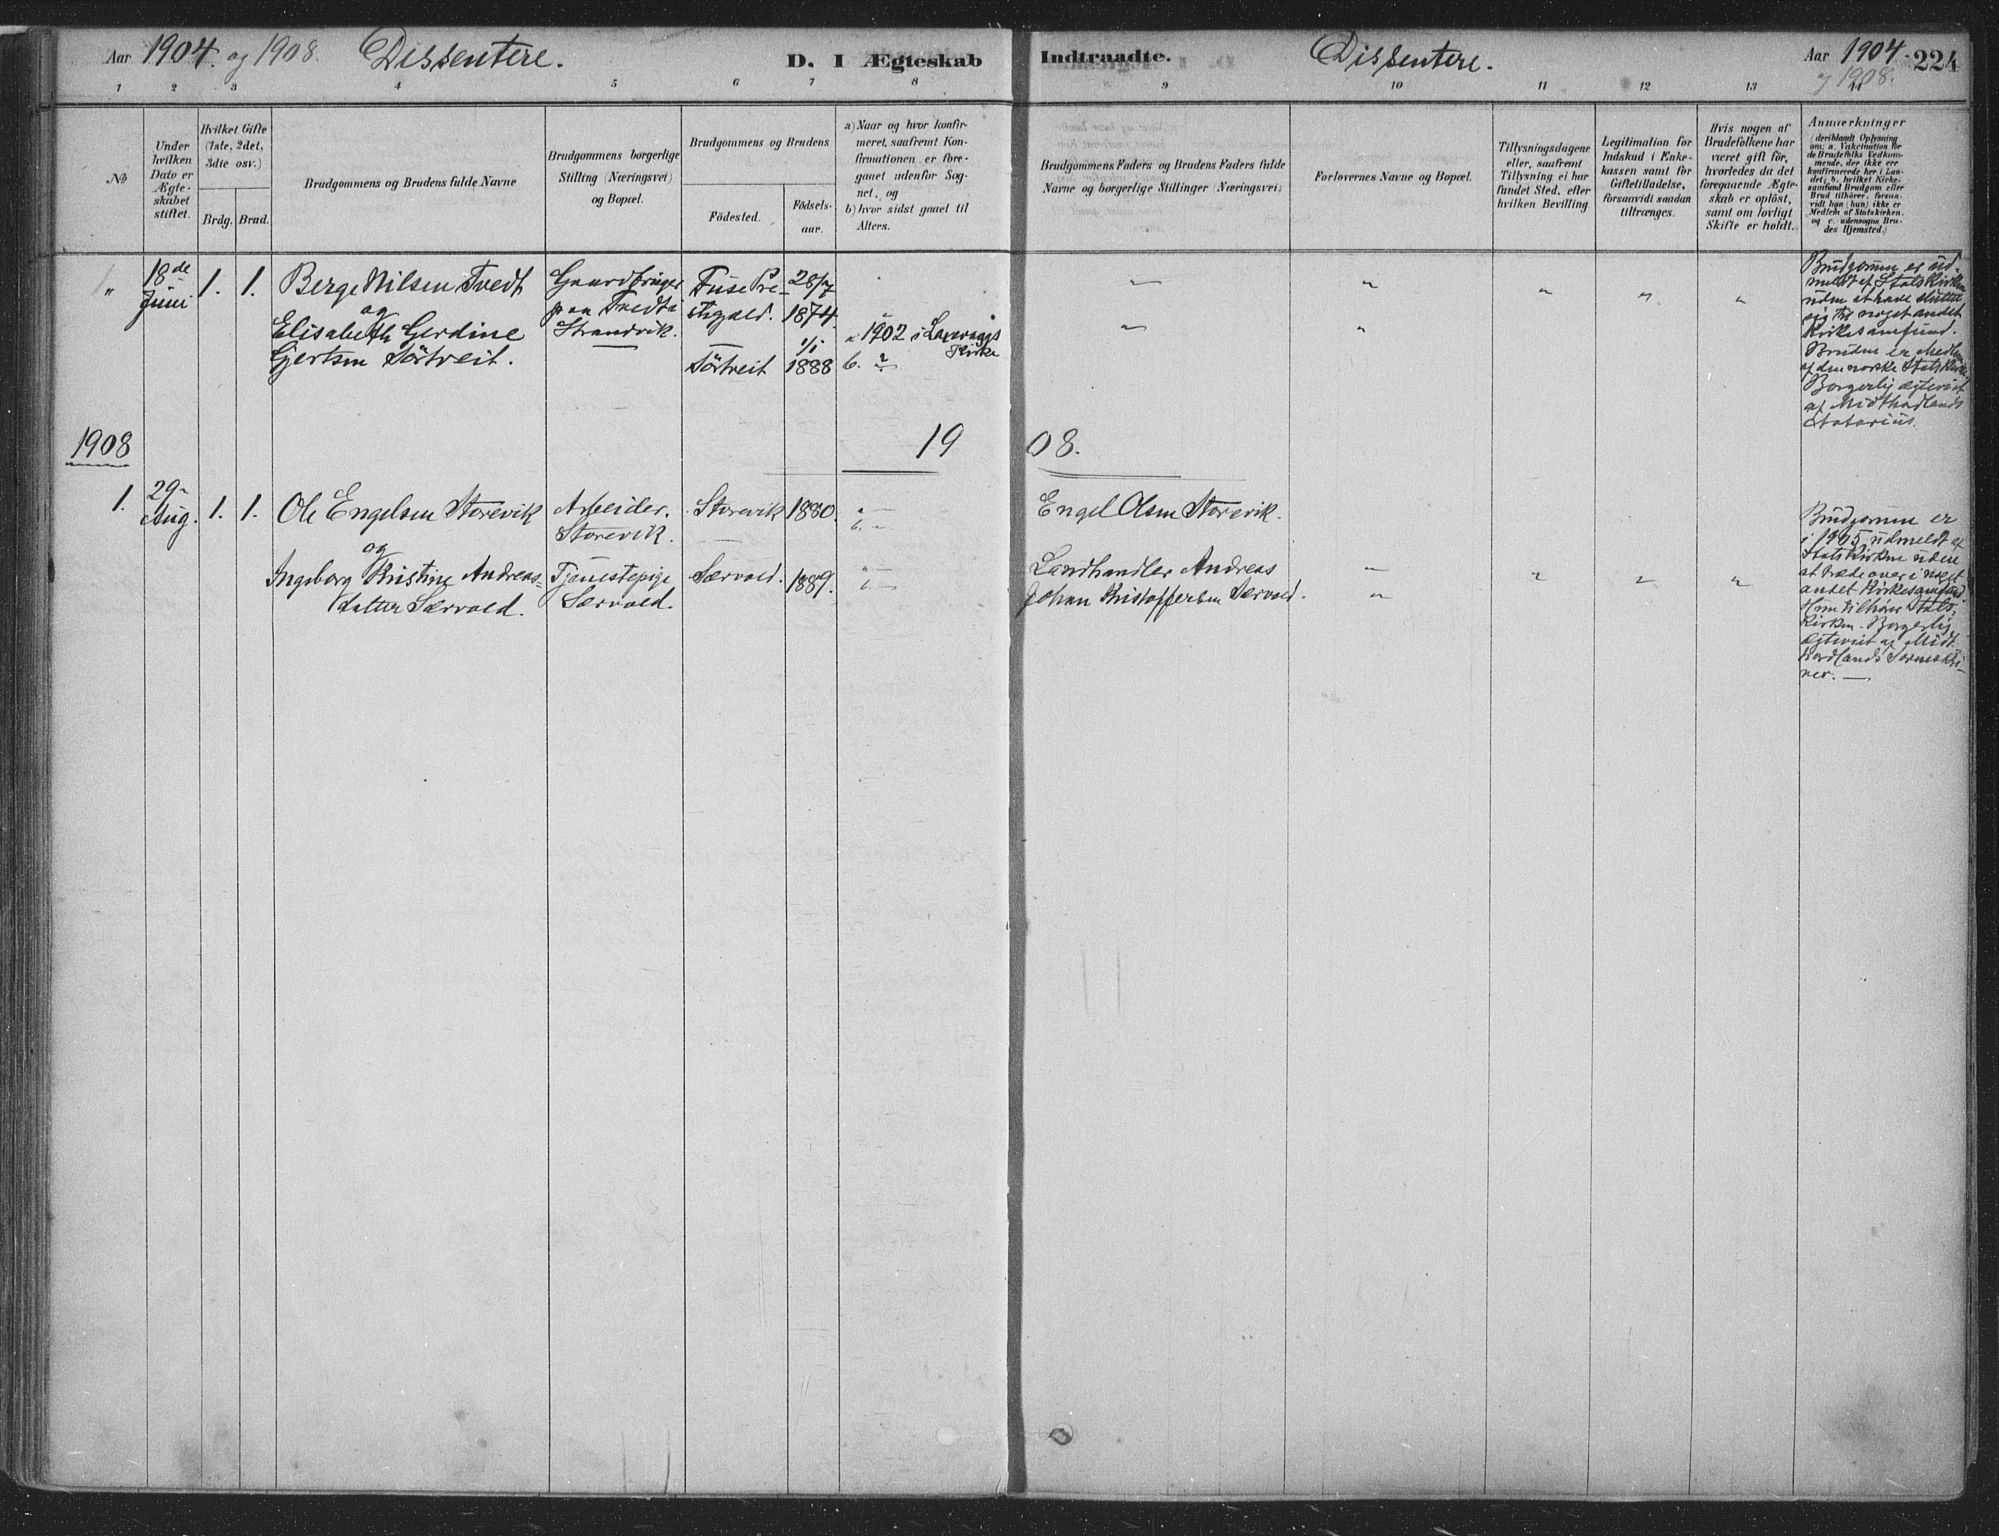 Aar 1904. og 1908. Dissentere. D. I Ægteskab Indtraadte. Dissentere. Aar 1904 224
1908.
1 2 3 4 5 6 7 8 9 10 11 12 13
№
Under hvilken Dato er Ægteskabet stiftet.
Hvilket Gifte (1ste, 2det, 3die osv.)
Brdg. Brud.
Brudgommens og Brudens fulde Navne
Brudgommens borgerlige Stilling (Næringsvei) og Bopæl.
Brudgommens og Brudens
Födested. Födselsaar.
a) Naar og hvor konfirmeret, saafremt Konfirmationen er foregaaet udenfor Sognet, og
b) hvor sidst gaaet til Alters.
Brudgommens Faders og Brudens Faders fulde Navne og borgerlige Stillinger (Næringsvei)
Forlovernes Navne og Bopæl.
Tillysningsdagene eller, saafremt Tillysning ei har fundet Sted, efter hvilken Bevilling
Legitimation for Indskud i Enkekassen samt for Giftetilladelse, forsaavidt saadan tiltrænges.
Hvis nogen af Brudefolkene har været gift för, hvorledes da det foregaaende Ægteskab er oplöst, samt om lovligt Skifte er holdt.
Anmærkninger
(deriblandt Oplysning om: a. Vakcination for de Brudefolks Vedkommende, der ikke ere konfirmerede her i Landet; b. hvilket Kirkesamfund Brudgom eller Brud tilhörer, forsaavidt han (hun) ikke er Medlem af Statskirken, og c. udensogns Brudes Hjemsted.)
" 18de Juni 1. 1. Berge Nilsen Tvedt
og
Elisabeth Gerdine
Gjertsen Törtveit.
Gaardbruger
paa Tvedt i
Strandvik.
Fuse Præ-
stegjeld.
Törtveit
28/7
1874.
1/1
1888
a 1902 i Laxevaags
Kirke
b. "
Brudgommen er ud-
meldt af Statskirken
uden at have sluttet
sig til noget andet
Kirkesamfund.
Bruden er Medlem
af den norske Statskirke
Borgerlig ægteviet
af Midthordlands
Notarius.
1908 19 08.
1. 29- Aug. 1. 1. Ole Engelsen Storevik
og
Ingeborg Kristine Andreas-
datter Særvold.
Arbeider.
Storevik.
Tjenestepige
Særvold.
Storevik 1880.
Særvold. 1889.
a "
b. "
Engel Olsen Storevik.
Landhandler Andreas
Johan Kristoffersen Særvold.
Brudgommen er
i 1905 udmeldt af
Statskirken uden
at træde over i noget
andet Kirkesamfund
Hun tilhører Stats-
kirken. Borgerlig
ægteviet af Midt-
hordlands